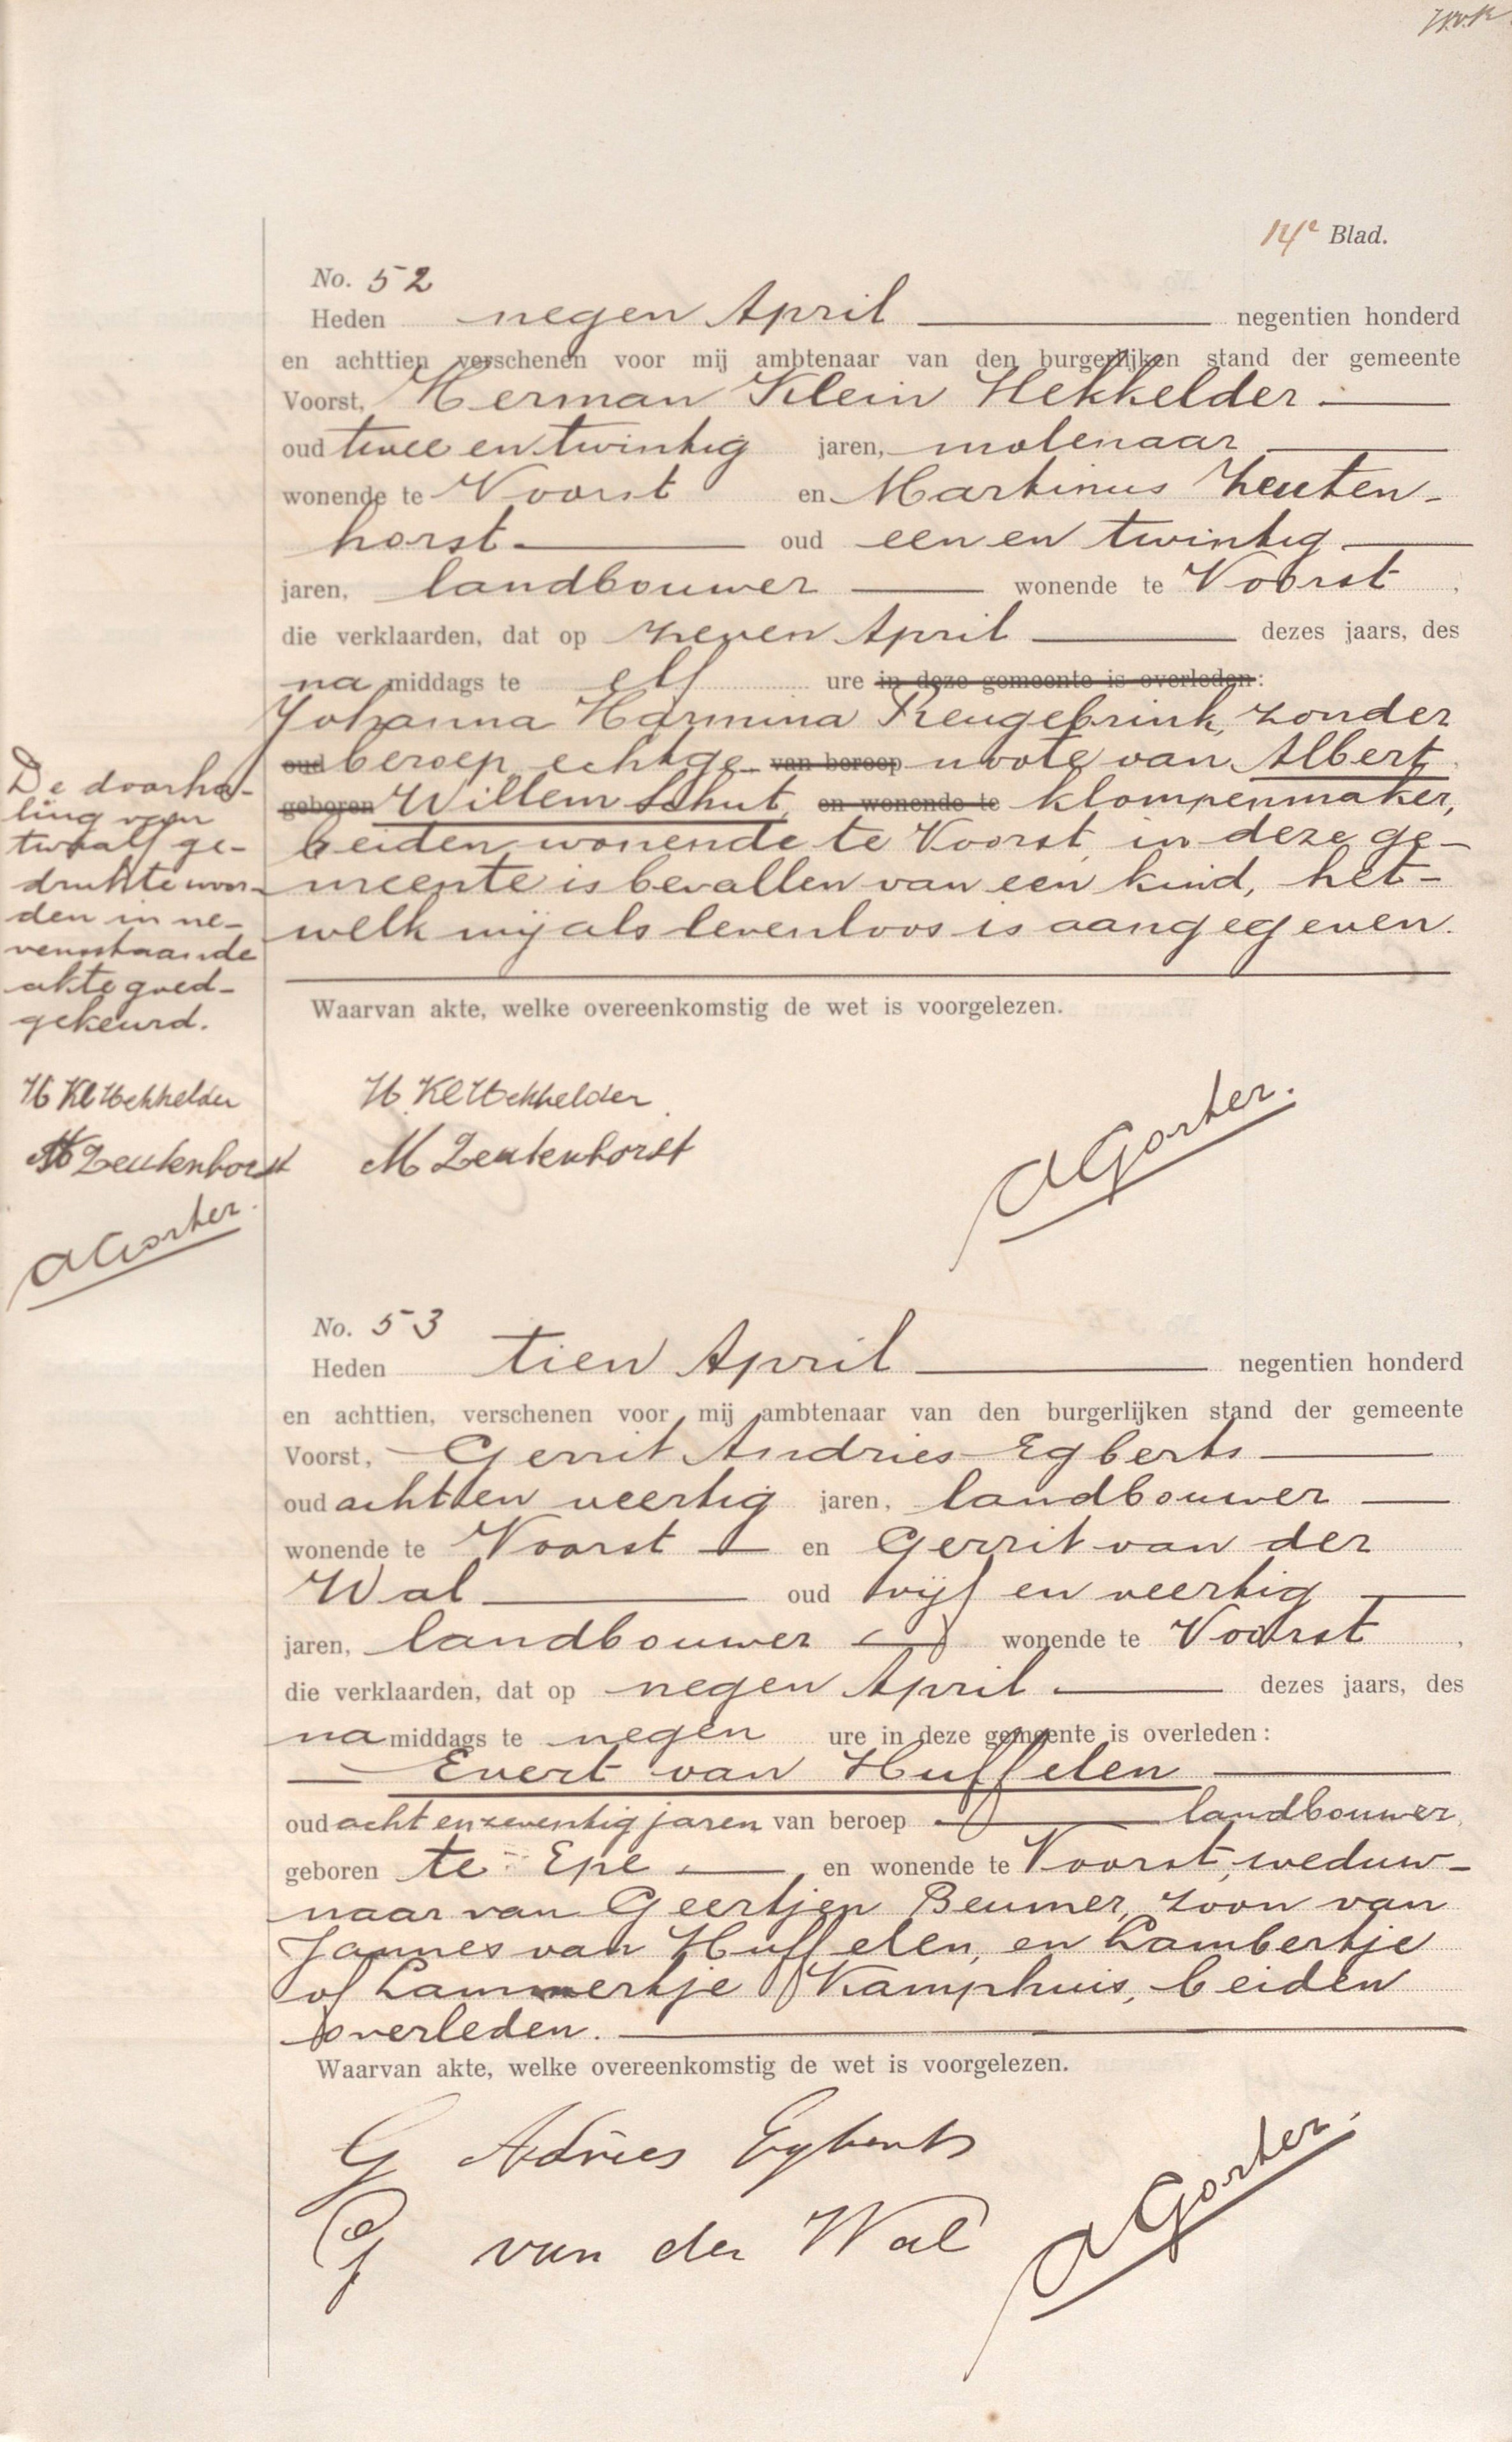 14e Blad.
No. 52
Heden negen April negentien honderd
en achttien verschenen voor mij ambtenaar van den burgerlijken stand der gemeente
Voorst, Herman Klein Hekkelder
oud twee en twintig jaren, molenaar
wonende te Voorst en Martinus Zeuten-
horst oud een en twintig
jaren, landbouwer wonende te Voorst,
die verklaarden, dat op zeven April dezes jaars, des
na middags te elf ure in deze gemeente is overleden:
Johanna Harmina Reugebrink, zonder
oud beroep, echtge- van beroep noote van Albert
geboren Willem Schut, en wonende te klompenmaker,
beiden wonende te Voorst, in deze ge-
meente is bevallen van een kind, het-
welk mij als levenloos is aangegeven.
Waarvan akte, welke overeenkomstig de wet is voorgelezen.
H Kl Hekkelder
M Zeutenhorst
A Gorter.
De doorha-
ling van
twaalf ge-
drukte woor-
den in ne-
venstaande
akte goed-
gekeurd.
H Kl Hekkelder
M Zeutenhorst
A Gorter.
No. 53
Heden tien April negentien honderd
en achttien, verschenen voor mij ambtenaar van den burgerlijken stand der gemeente
Voorst, Gerrit Andries Egberts
oud acht en veertig jaren, landbouwer
wonende te Voorst en Gerrit van der
Wal oud vijf en veertig
jaren, landbouwer wonende te Voorst,
die verklaarden, dat op negen April dezes jaars, des
na middags te negen ure in deze gemeente is overleden:
Evert van Huffelen
oud acht en zeventig jaren van beroep landbouwer,
geboren te Epe en wonende te Voorst, weduw-
naar van Geertjen Beumer, zoon van
Jannes van Huffelen, en Lambertje
of Lammertje Kamphuis, beiden
overleden.
Waarvan akte, welke overeenkomstig de wet is voorgelezen.
G Adries Egberts
G van der Wal
A Gorter.